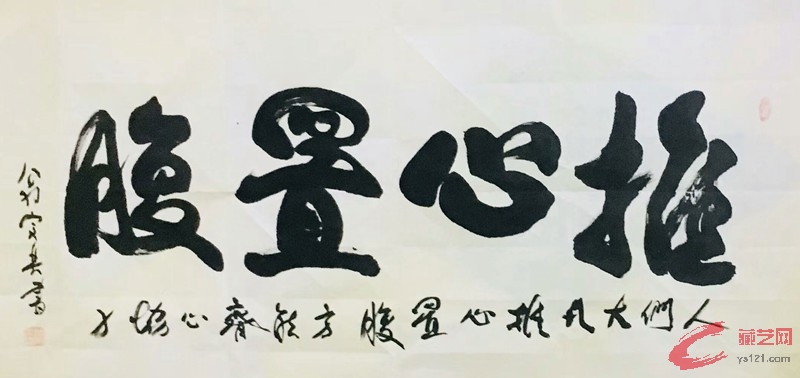 推心置腹
人們大凡推心置腹方能齊心協力
書
藏艺网
ys121.com